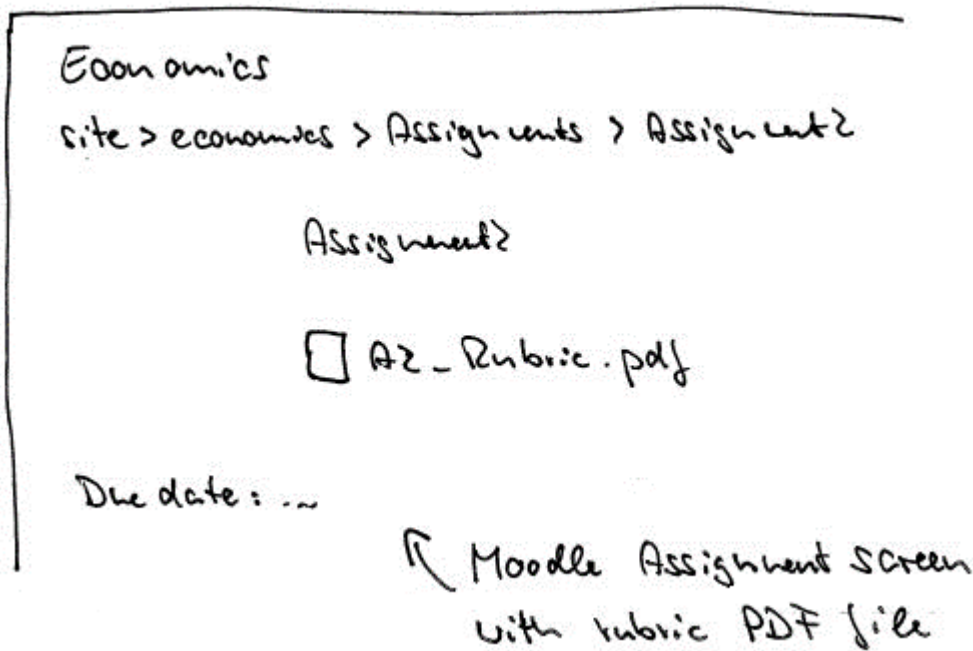 Economics
site > economics > Assignments > Assignment2
Assignment2
A2_Rubric.pdf
Due date: ...
Moodle Assignment screen
with rubric PDF file